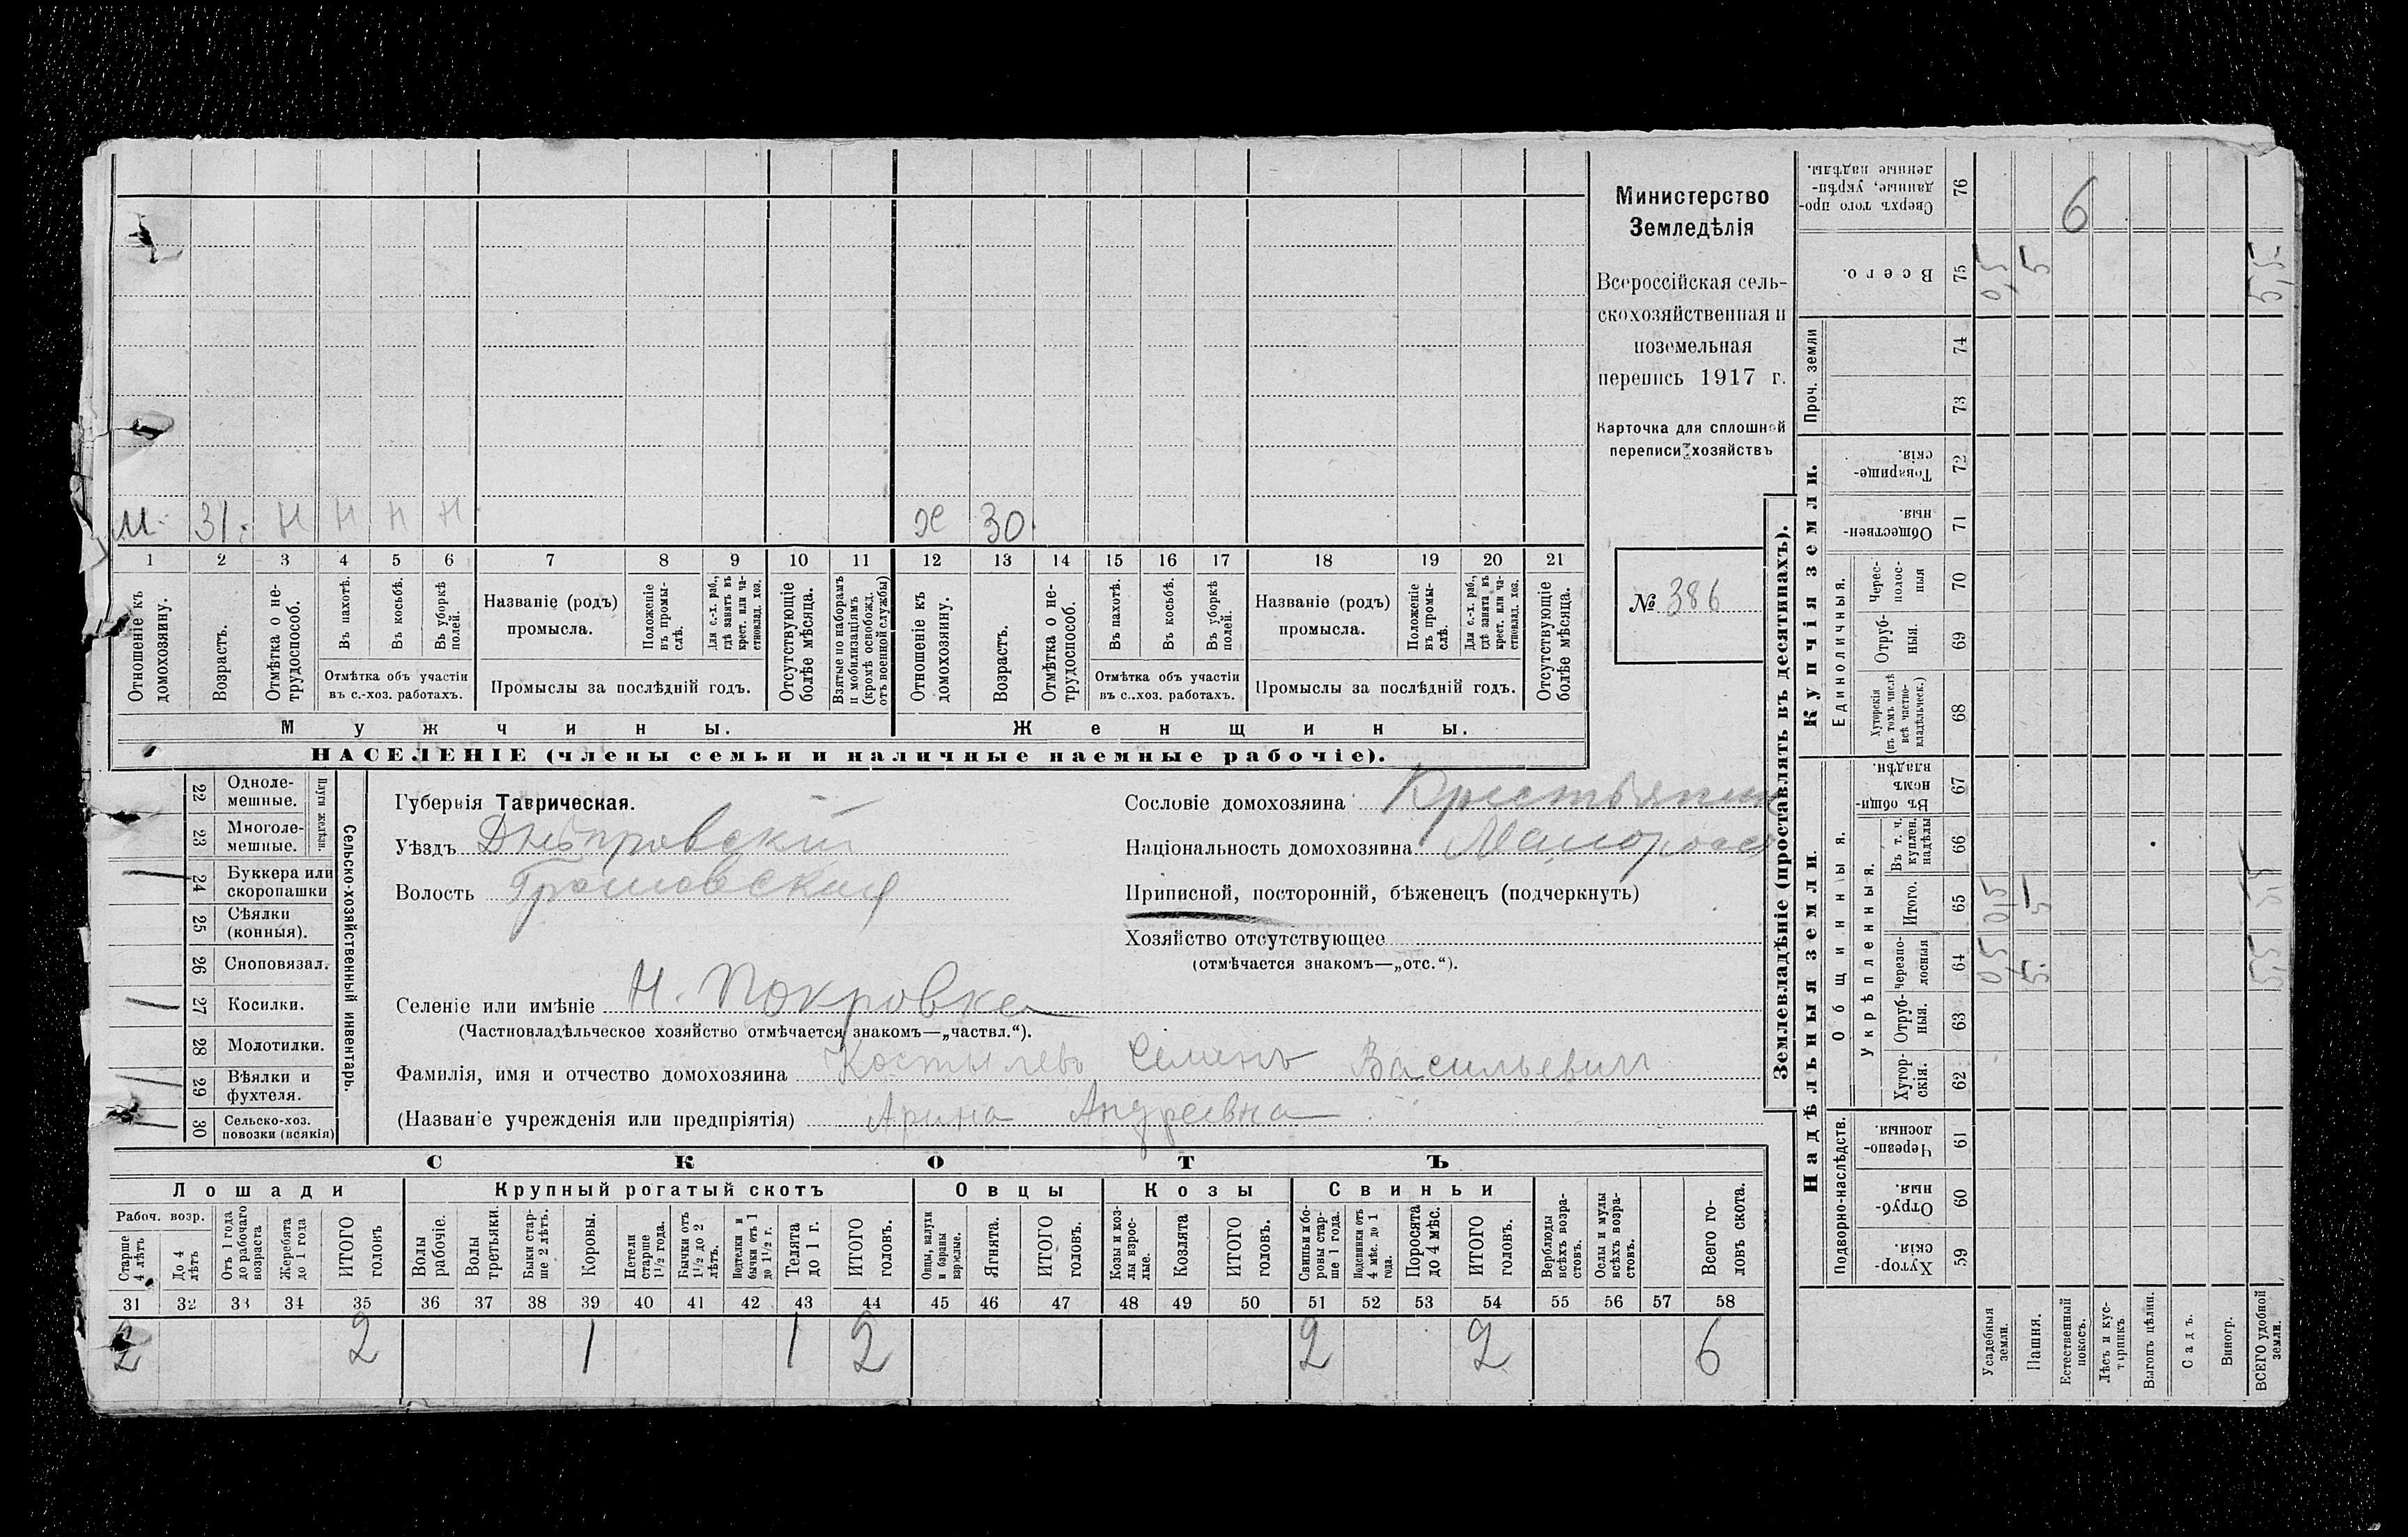 м 31. н н н н
ж 30.
1 2 3 4 5 6 7 8 9 10 11 12 13 14 15 16 17 18 19 20 21
Отношеніе къ домохозяину.
Возрастъ.
Отмѣтка о не-трудоспособ.
Въ пахотѣ.
Въ косьбѣ.
Въ уборкѣ полей.
Отмѣтка объ участіи
въ с.-хоз. работахъ.
Названіе (родъ)
промысла.
Положеніе въ промы-слѣ.
Для с.-х. раб., гдѣ занятъ въ крест. или ча-стновлад. хоз.
Промыслы за послѣдній годъ.
Отсутствующіе болѣе мѣсяца.
Взятые по наборамъ и мобилизаціямъ (кромѣ освобожд. отъ военной службы)
Отношеніе къ домохозяину.
Возрастъ.
Отмѣтка о не-трудоспособ.
Въ пахотѣ.
Въ косьбѣ.
Въ уборкѣ полей.
Отмѣтка объ участіи
въ с..хоз. работахъ.
Названіе (родъ)
промысла.
Положеніе въ промы-слѣ.
Для с.-х. раб., гдѣ занята въ крест. или ча-стновлад. хоз.
Промыслы за послѣдній годъ.
Отсутствующіе болѣе мѣсяца.
Мужчины.
Женщины.
НАСЕЛЕНІЕ (члены семьи и наличные наемные рабочіе).
Министерство
Земледѣлія
Всероссійская сель-
скохозяйственная и
поземельная
перепись 1917 г.
Карточка для сплошной
переписи хозяйствъ
№ 386
22 Одноле-мешные.
23 Многоле-мешные.
Плуги желѣзн.
24 Буккера или скоропашки
25 Сѣялки (конныя).
26 Сноповязал.
27 Косилки.
28 Молотилки.
29 Вѣялки и фухтеля.
30 Сельско-хоз. повозки (всякія)
Сельско-хозяйственный инвентарь.
Губернія Таврическая.
Уѣздъ Днѣпровскій
Волость Громовская
Селеніе или имѣніе Н. Покровка
(Частновладѣльческое хозяйство отмѣчается знакомъ—„частвл.“).
Фамилія, имя и отчество домохозяина Костылевъ Семенъ Васильевич
(Названіе учрежденія или предпріятія) Арина Андреевна
Сословіе домохозяина Крестьянин
Національность домохозяина Малоросс
Приписной, посторонній, бѣженецъ (подчеркнуть)
Хозяйство отсутствующее
(отмѣчается знакомъ—„отс.“).
СКОТЪ
Лошади
Крупный рогатый скотъ
Овцы
Козы
Свиньи
Рабоч. возр.
Старше 4 лѣтъ
До 4 лѣтъ
Отъ 1 года до рабочаго возраста
Жеребята до 1 года
ИТОГО головъ
Волы рабочіе.
Волы третьяки.
Быки стар-ше 2 лѣтъ.
Коровы.
Нетели старше 1½ года.
Бычки отъ 1½ до 2 лѣтъ.
Подтелки и бычки отъ 1 до 1½ г.
Телята до 1 г.
ИТОГО головъ.
Овцы, валухи и бараны взрослые.
Ягнята.
ИТОГО головъ.
Козы и коз-лы взрос-лые.
Козлята
ИТОГО головъ.
Свиньи и бо-ровы стар-ше 1 года.
Подсвинки отъ 4 мѣс. до 1 года.
Поросята до 4 мѣс.
ИТОГО головъ.
Верблюды всѣхъ возра-стовъ.
Ослы и мулы всѣхъ возра-стовъ.
Всего го-ловъ скота.
31 32 33 34 35 36 37 38 39 40 41 42 43 44 45 46 47 48 49 50 51 52 53 54 55 56 57 58
2 2 1 1 2 2 2 6
Землевладѣніе (проставлять въ десятинахъ).
Надѣльныя земли.
Купчія земли.
Проч. земли
Подворно-наслѣдств.
Общинныя.
Укрѣпленныя.
Единоличныя.
Сверхъ того про-данные, укрѣп-ленные надѣлы. 76 6
Всего. 75 0,5 5 5,5
74
73
Товарище-скія. 72
Обществен-ныя. 71
Черес-полос-ныя 70
Отруб-ныя. 69
Хуторскія (въ томъ числѣ всѣ частно-владѣльческ.) 68
Въ общи-номъ владѣн. 67
Въ т. ч. куплен. надѣлы 66
Итого. 65 0,5 5 5,5
Черезпо-лосныя 64 0 5 5. 5,5
Отруб-ныя. 63
Хутор-скія. 62
Черезпо-лосныя. 61
Отруб-ныя. 60
Хутор-скія. 59
Усадебныя земли.
Пашня.
Естественный покосъ.
Лѣсъ и кус-тарникъ
Выгонъ цѣлин.
Садъ.
Виногр.
ВСЕГО удобной земли.